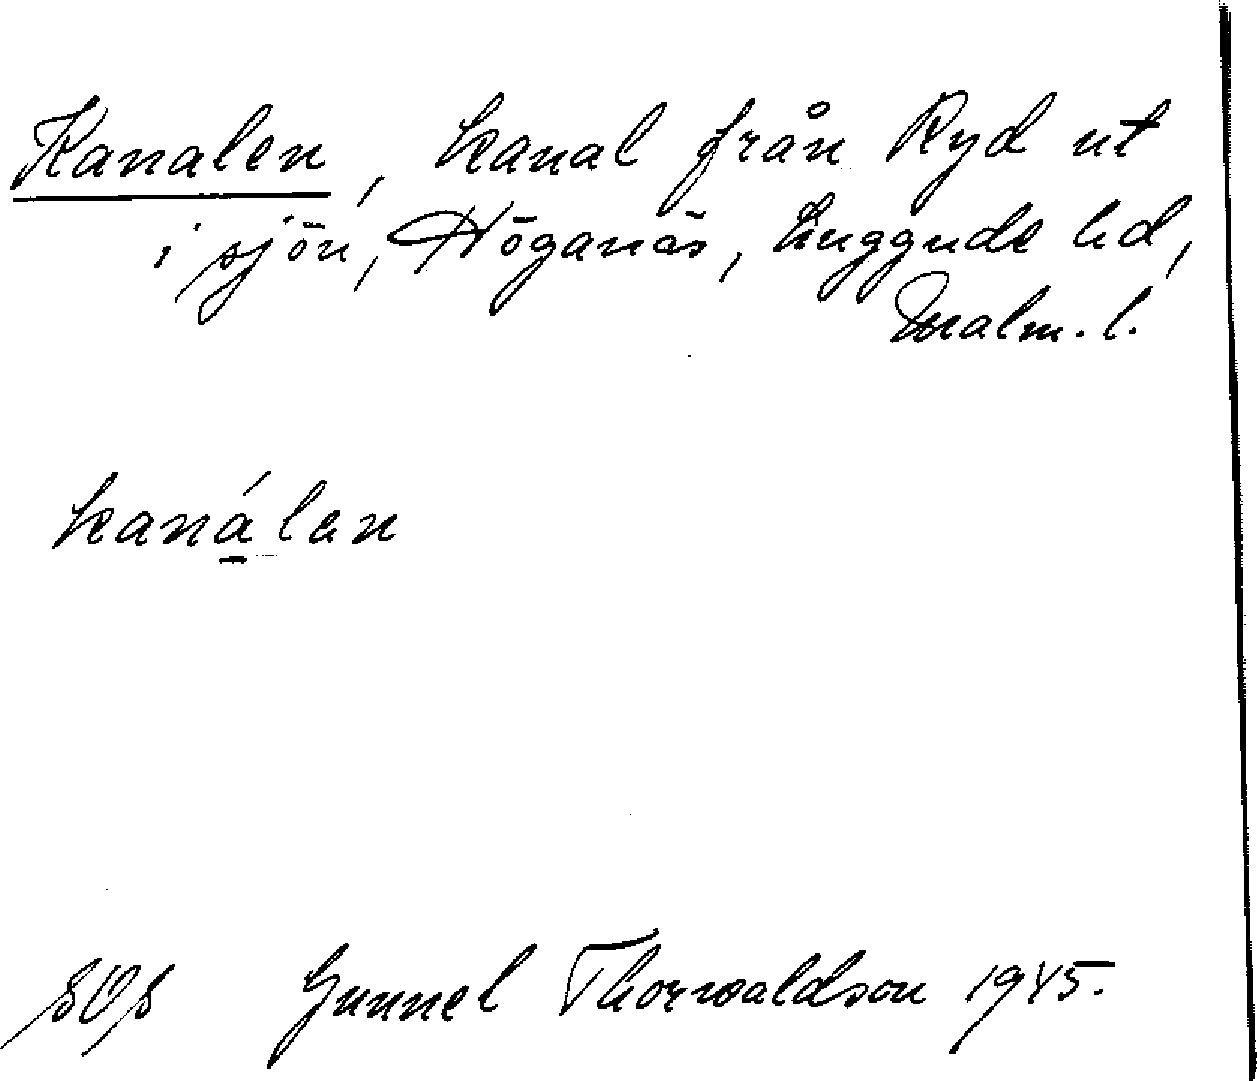 Kanalen, kanal från Ryd ut
i sjön, Höganäs, Luggude hd,
Malm. l.
kanálen
Gunnel Thorwaldson 1945.